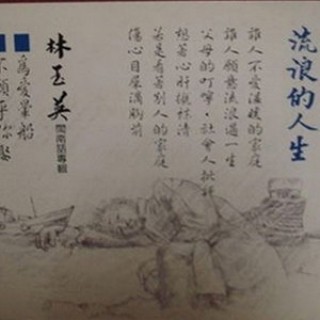 流浪的人生
誰人不愛溫暖的家庭
誰人願意流浪過一生
父母的叮嚀，社會人批評
想著心肝攏袂清
若是看著別人的家庭
傷心目屎滴胸前
林玉英
閩南語專輯
■為愛暈船